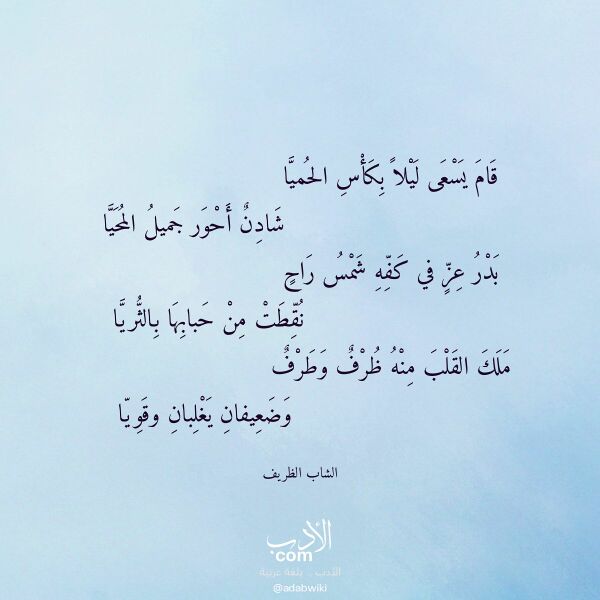 قَامَ يَسْعَى لَيْلاً بِكَأْسِ الحُميَّا
شَادِنٌ أَحْوَر جَميلُ المُحَيَّا
بَدْرُ عِزٍّ في كَفِّهِ شَمْسُ رَاحٍ
نُقِّطَتْ مِنْ حَبابِهَا بِالثُّريَّا
مَلَكَ القَلْبَ مِنْهُ ظُرْفٌ وَطَرْفٌ
وَضَعِيفانِ يَغْلِبانِ وقَوِيّا
الشاب الظريف
الأدب
com
الأدب .. بلغة عربية
@adabwiki